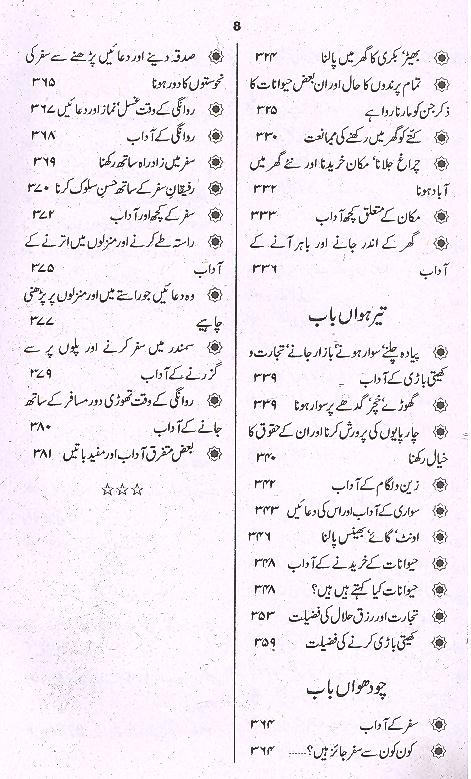 8
بھیڑ، بکری کا گھر میں پالنا ۳۲۴
تمام پرندوں کا حال اور ان بعض حیوانات کا
ذکر جن کو مارنا روا ہے ۳۲۵
کتے کو گھر میں رکھنے کی ممانعت ۳۳۰
چراغ جلانا، مکان خریدنا اور نئے گھر میں
آباد ہونا ۳۳۲
مکان کے متعلق کچھ آداب ۳۳۳
گھر کے اندر جانے اور باہر آنے کے
آداب ۳۳۶
تیرھواں باب
پیادہ چلنے، سوار ہونے، بازار جانے، تجارت و
کھیتی باڑی کے آداب ۳۳۹
گھوڑے، خچر، گدھے پر سوار ہونا ۳۳۹
چارپایوں کی پرورش کرنا اور ان کے حقوق کا
خیال رکھنا ۳۴۰
زین و لگام کے آداب ۳۴۲
سواری کے آداب اور اس کی دعائیں ۳۴۳
اونٹ، گائے، بھینس پالنا ۳۴۶
حیوانات کے خریدنے کے آداب ۳۴۸
حیوانات کیا کہتے ہیں ہیں؟ ۳۴۸
تجارت اور رزق حلال کی فضیلت ۳۵۳
کھیتی باڑی کرنے کی فضیلت ۳۵۹
چودھواں باب
سفر کے آداب ۳۶۴
کون کون سے سفر جائز ہیں؟...... ۳۶۴
صدقہ دینے اور دعائیں پڑھنے سے سفر کی
نحوستوں کا دور ہونا ۳۶۵
روانگی کے وقت غسل، نماز اور دعائیں ۳۶۷
روانگی کے آداب ۳۶۸
سفر میں زاد راہ ساتھ رکھنا ۳۶۹
رفیقان سفر کے ساتھ حسن سلوک کرنا ۳۷۰
سفر کے کچھ اور آداب ۳۷۲
راستہ طے کرنے اور منزلوں میں اترنے کے
آداب ۳۷۵
وہ دعائیں جو راستے میں اور منزلوں پر پڑھنی
چاہیے ۳۷۷
سمندر میں سفر کرنے اور پلوں پر سے
گزرنے کے آداب ۳۷۹
روانگی کے وقت تھوڑی دور مسافر کے ساتھ
جانے کے آداب ۳۸۰
بعض متفرق آداب اور مفید باتیں ۳۸۱
☆☆☆